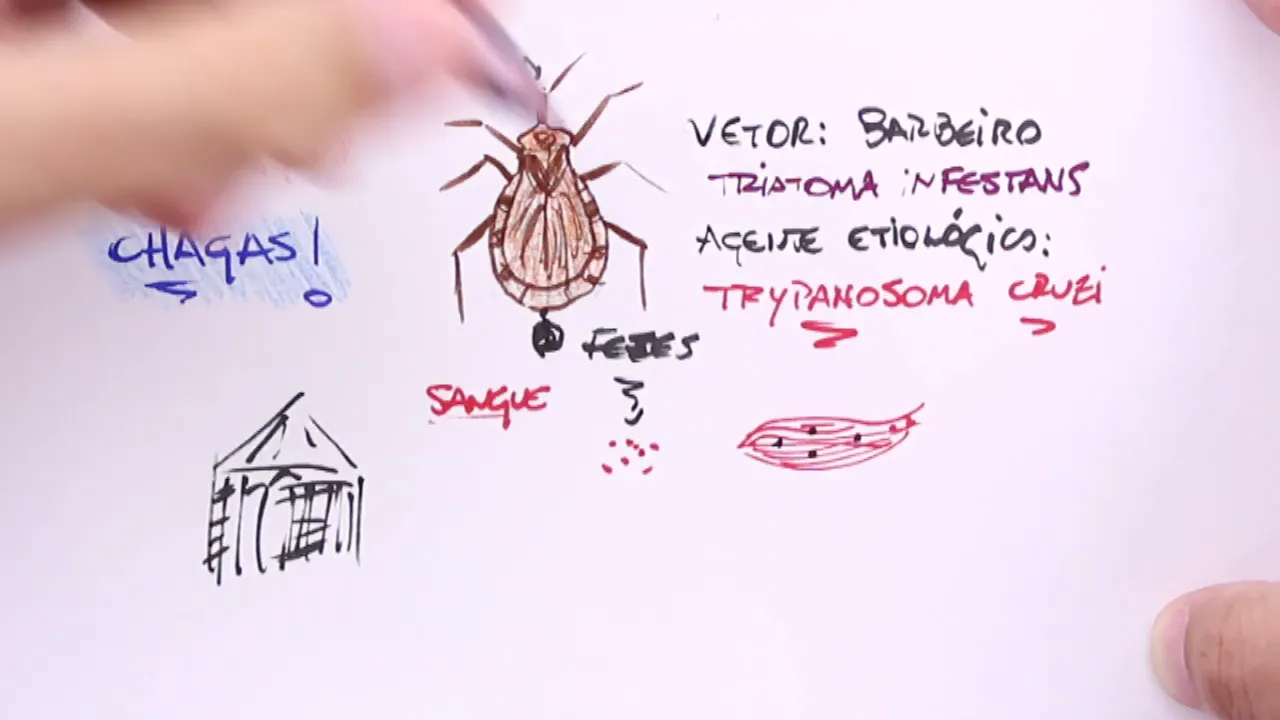 VETOR: BARBEIRO
TRIATOMA INFESTANS
CHAGAS!
AGENTE ETIOLÓGICO:
TRYPANOSOMA CRUZI
FEZES
SANGUE